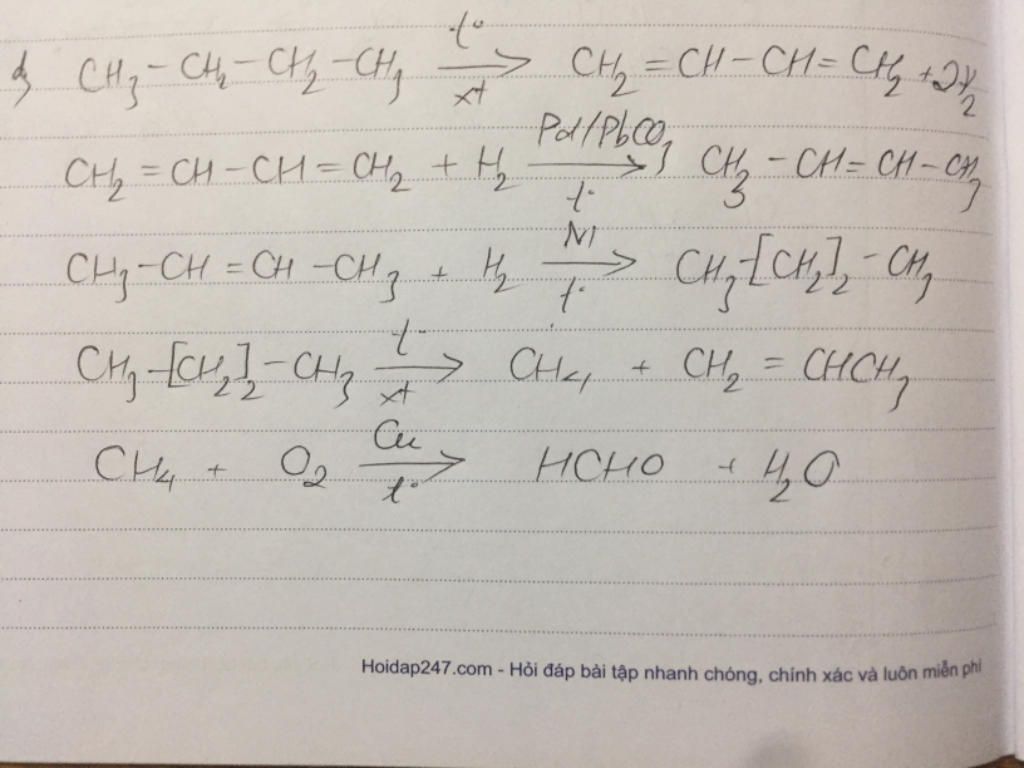 d) CH₃ – CH₂ – CH₂ – CH₃ –t°/xt→ CH₂ = CH – CH = CH₂ + 2H₂
CH₂ = CH – CH = CH₂ + H₂ –Pd/PbCO₃/t°→ CH₃ – CH = CH – CH₃
CH₃ – CH = CH – CH₃ + H₂ –Ni/t°→ CH₃-[CH₂]₂ – CH₃
CH₃ –[CH₂]₂ – CH₃ –t°/xt→ CH₄ + CH₂ = CHCH₃
CH₄ + O₂ –Cu/t°→ HCHO + H₂O
Hoidap247.com - Hỏi đáp bài tập nhanh chóng, chính xác và luôn miễn phí